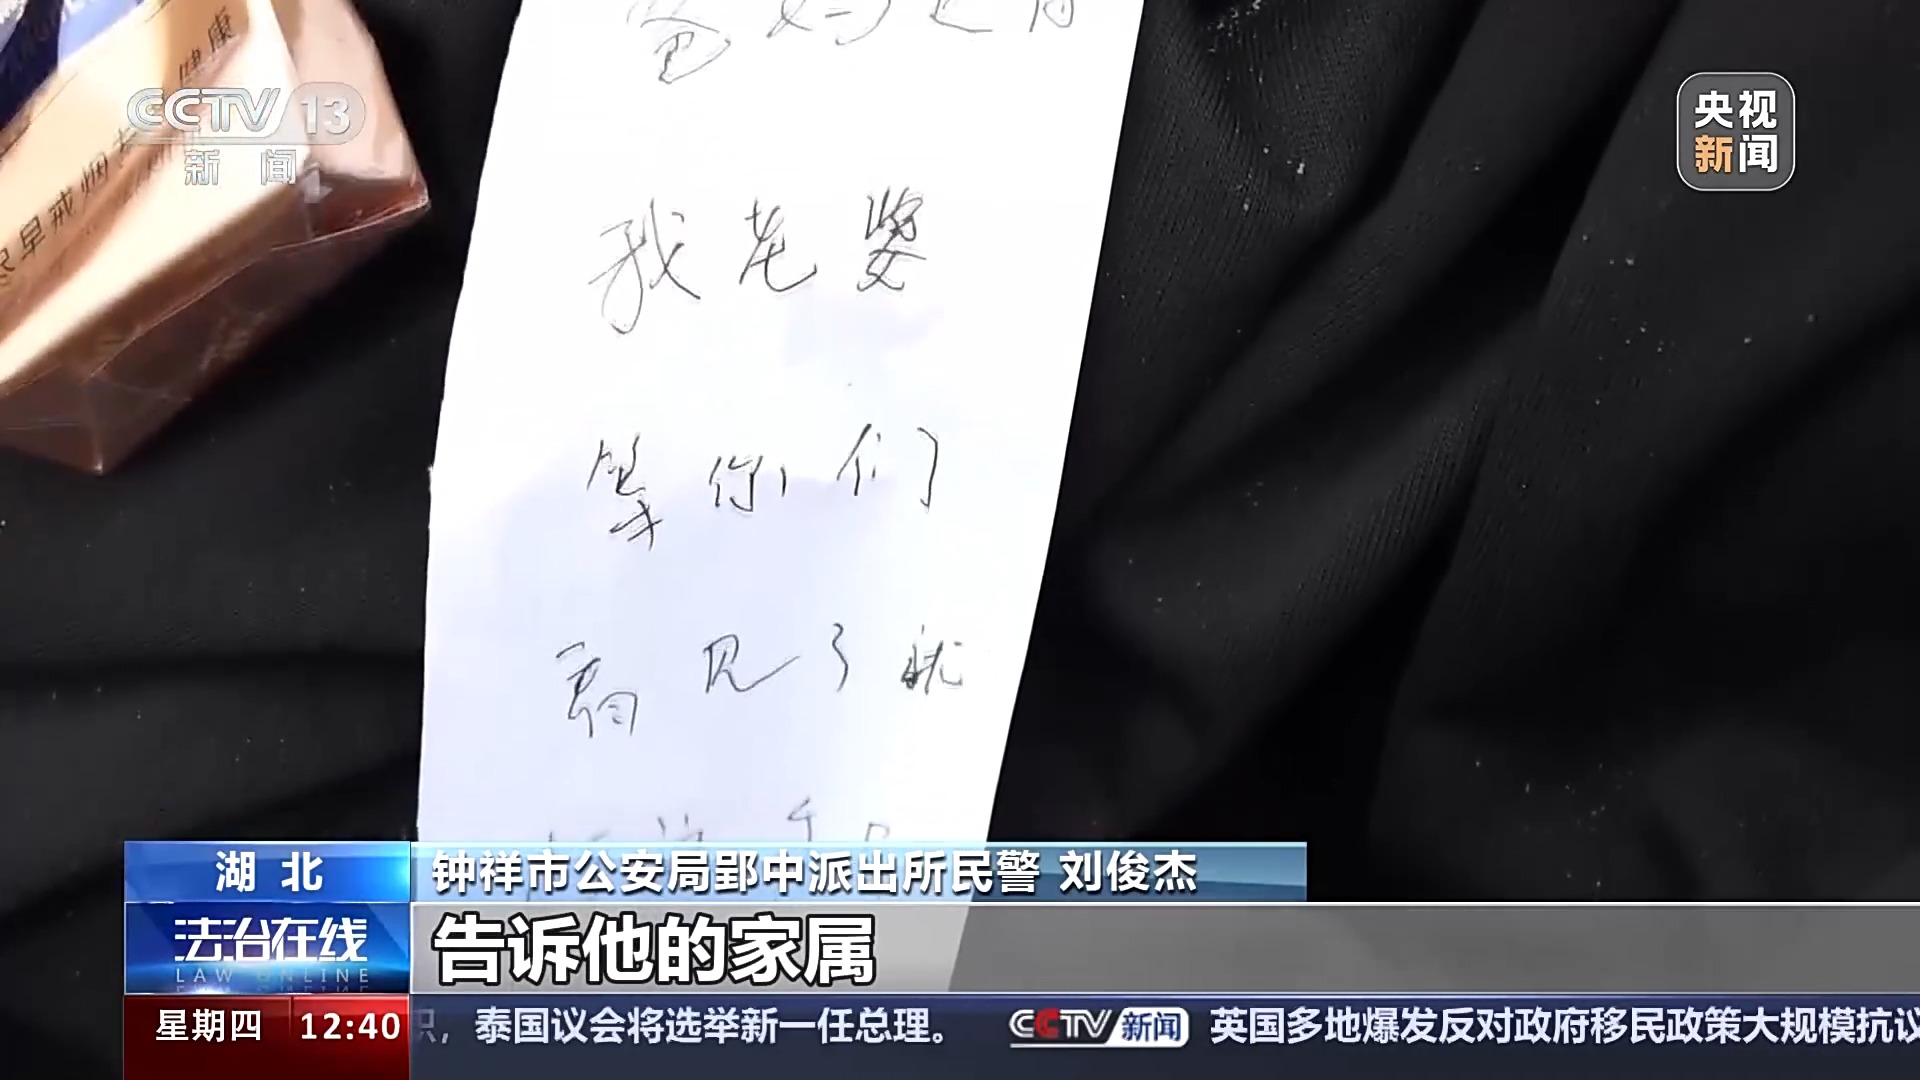 健康
尽早戒烟
CCTV 13
新闻
央视
新闻
爸妈还有
我老婆
等你们
看见了就
湖北
钟祥市公安局郢中派出所民警 刘俊杰
法治在线
LAW ONLINE
告诉他的家属
星期四 12:40
职，泰国议会将选举新一任总理。 CCTV新闻 英国多地爆发反对政府移民政策大规模抗议